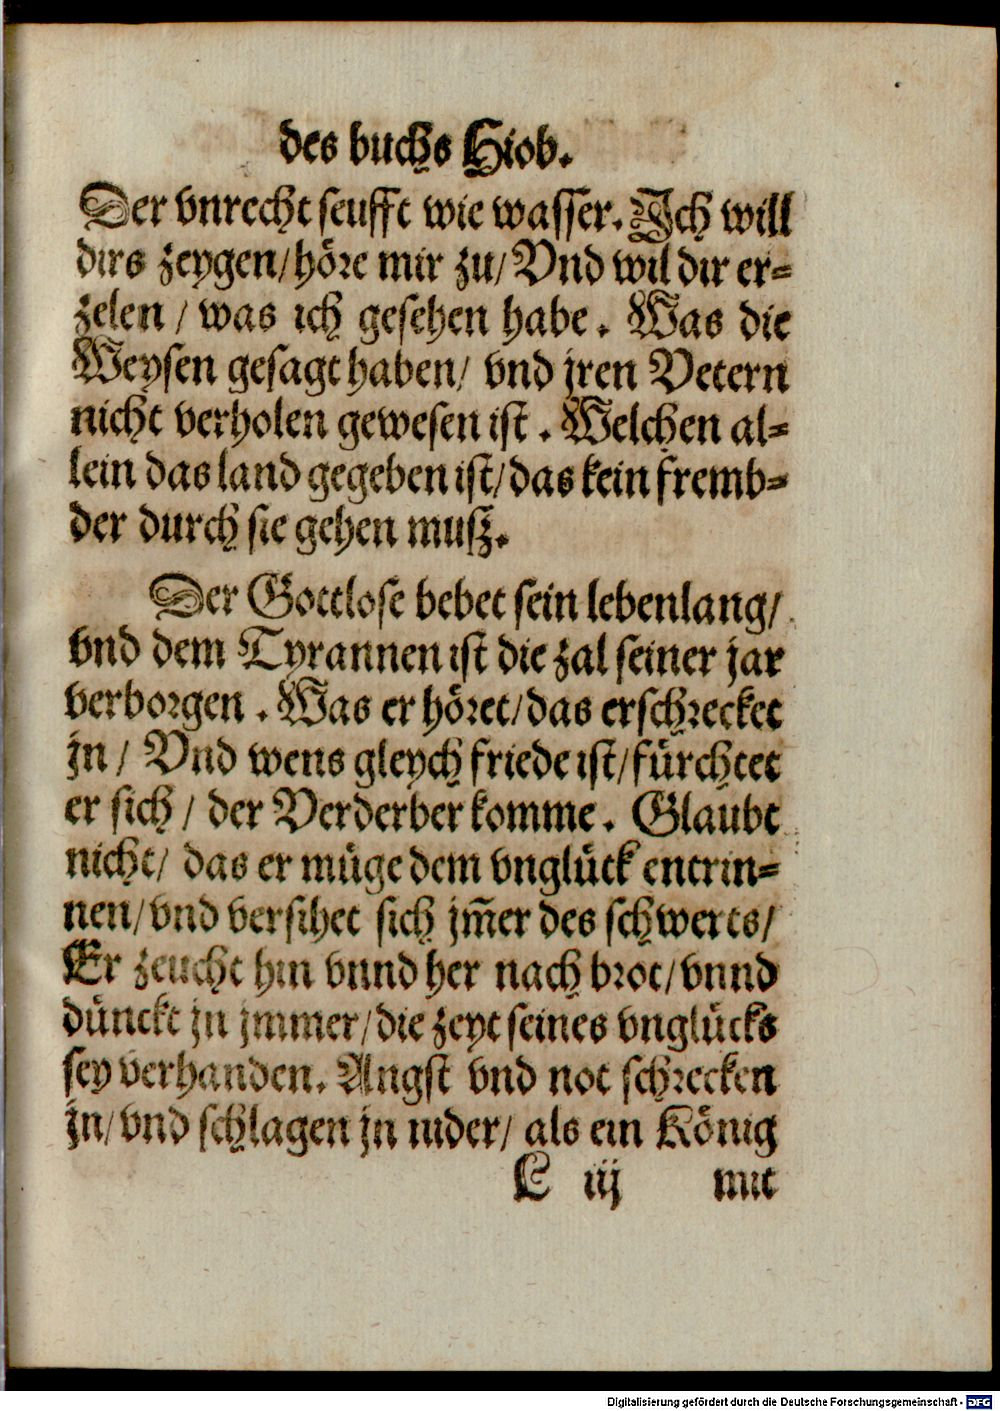 des buchs Hiob.
Der vnrecht seufft wie wasser. Jch will
dirs zeygen/ höre mir zu/ Vnd wil dir er-
zelen / was ich gesehen habe. Was die
Weysen gesagt haben/ vnd jren Vetern
nicht verholen gewesen ist. Welchen al-
lein das land gegeben ist/ das kein fremb-
der durch sie gehen muß.
Der Gottlose bebet sein lebenlang/
vnd dem Tyrannen ist die zal seiner jar
verborgen. Was er höret/ das erschrecket
jn / Vnd wens gleych friede ist/ fürchtet
er sich / der Verderber komme. Glaubt
nicht/ das er müge dem vnglück entrin-
nen/ vnd versihet sich jm̃er des schwerts/
Er zeucht hin vnnd her nach brot/ vnnd
dünckt jn jmmer/ die zeyt seines vnglücks
sey verhanden. Angst vnd not schrecken
jn/ vnd schlagen jn nider/ als ein König
E iij mit
Digitalisierung gefördert durch die Deutsche Forschungsgemeinschaft - DFG